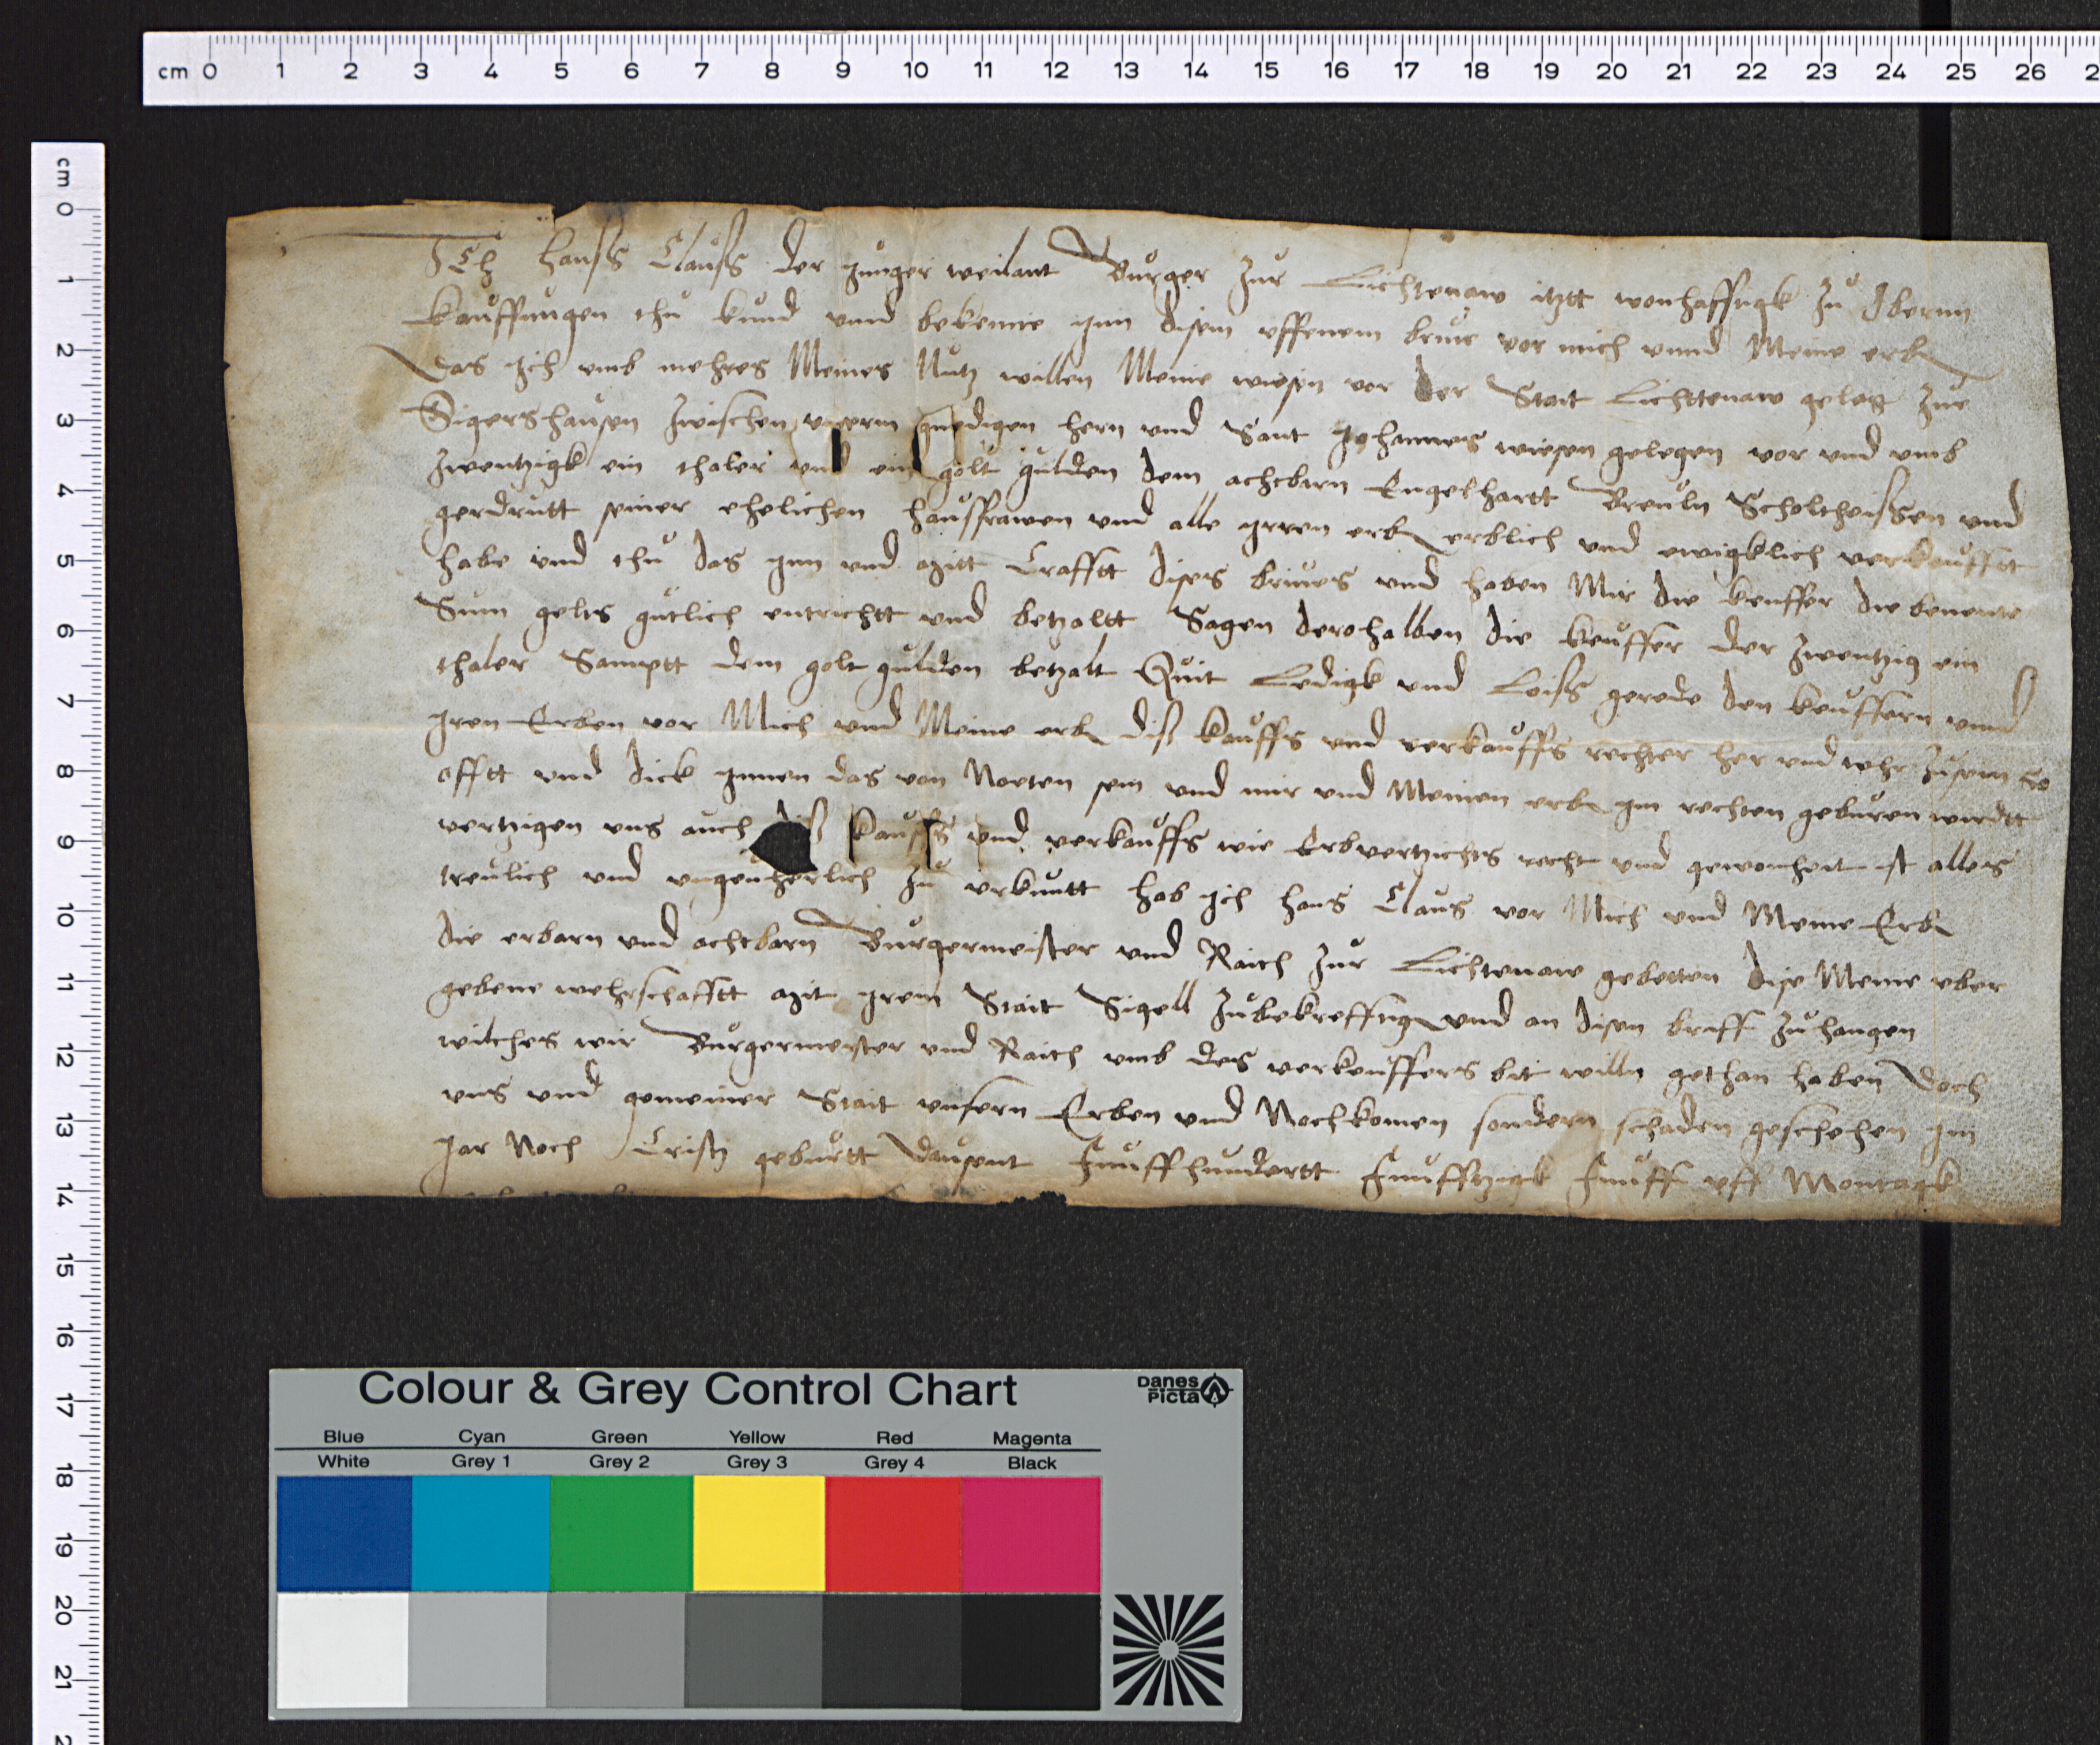 cm 0 1 2 3 4 5 6 7 8 9 10 11 12 13 14 15 16 17 18 19 20 21 22 23 24 25 26 2
cm 0 1 2 3 4 5 6 7 8 9 10 11 12 13 14 15 16 17 18 19 20 21 2
ICh Hanß Clauß der junger weilant Burger zur Lichtenaw itztt wonhafftigk zu Obernn
Kauffungen thu kund vnnd bekenne jnn disem offennem brine vor mich vnnd Meine erb
Das jch vmb mehres Meines Nutz willen Meine wiesen vor der Stait Lichttenaw geleg zue
Sigershausen zwischen vnserm gnedigen hern vnd Sant Johannes wiesen gelegen vor vnd vmb
zwentzigk ein thaler vnd ein golt gulden dem achtbarn Engelhartt Breuln Scholtheissen vnd
gerdrutt seiner ehelichen haussfrawen vnd alle jrren erb erblich vnd ewigklich verkaufftt
habe vnd thu das jnn vnd mitt Crafftt dises brives vnd haben Mir die keuffer die benente
Sum gelts gutlich entrichtt vnd betzaltt Sagen derohalben die keuffer der zwentzig ein
thaler Samptt dem golt gulden betzalt Quit Ledigk vnd Loiß gerede den keuffern vnnd
jren Erben vor Mich vnd Meine erb diß kauffs vnd verkauffs rechter her vnd wehr zusein so
offtt vnd dick jnnen das von Noeten sein vnd mir vnd Meinen erb im rechten geburen wirdtt
vertzigen vns auch diß kauffs vnd verkauffs wie Erbvertzichts recht vnd gewonheit ist alles
treulich vnd vngeuherlich zu vrkuntt hab jch Hans Claus vor Mich vnd Meine Erb
die erbarn vnd achtbarn Burgermeister vnd Raith zur Lichtenaw gebetten dise Meine vber
gebene wehrschafftt mit jrem Stait Sigell zubekrefftig vnd an disen briff zuhangen
wilches wir Burgermeyster vnd Raith vmb des verkeuffers bit willn gethan haben Doch
vns vnd gemeiner Stait vnsern Erben vnd Nochkomen sondern schaden geschehen jm
jar Noch Cristj geburtt Dausent Funffhundertt Funfftzigk Funff vff Montagk
Colour & Grey Control Chart
Danes Picta
Blue Cyan Green Yellow Red Magenta
White Grey 1 Grey 2 Grey 3 Grey 4 Black